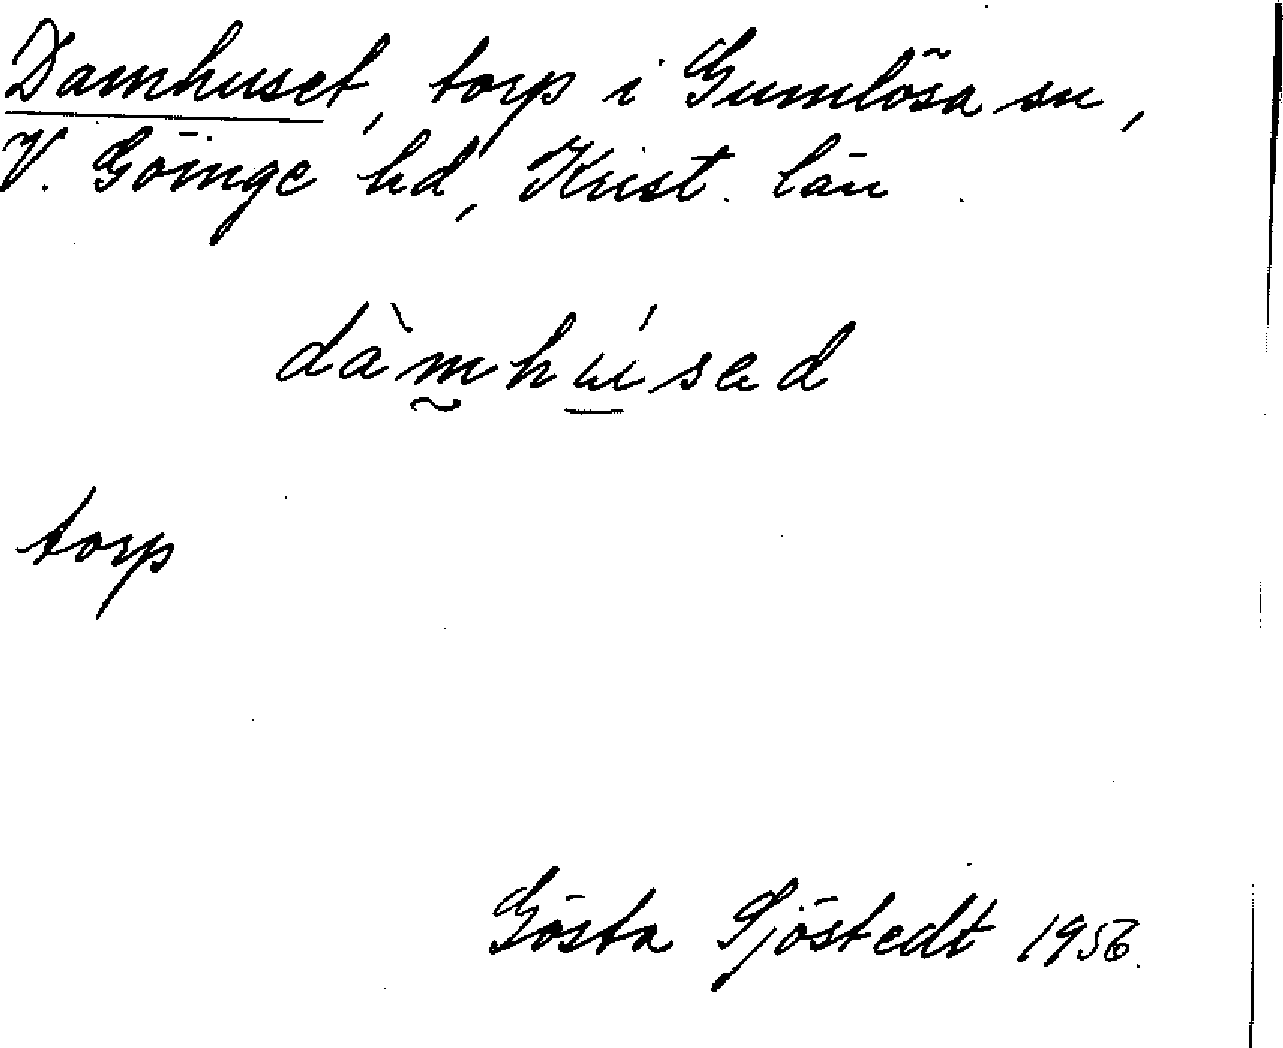 Damhuset, torp i Gumlösa sn,
V. Göinge hd, Krist. län.
dàmhúsad
torp
Gösta Sjöstedt 1956.